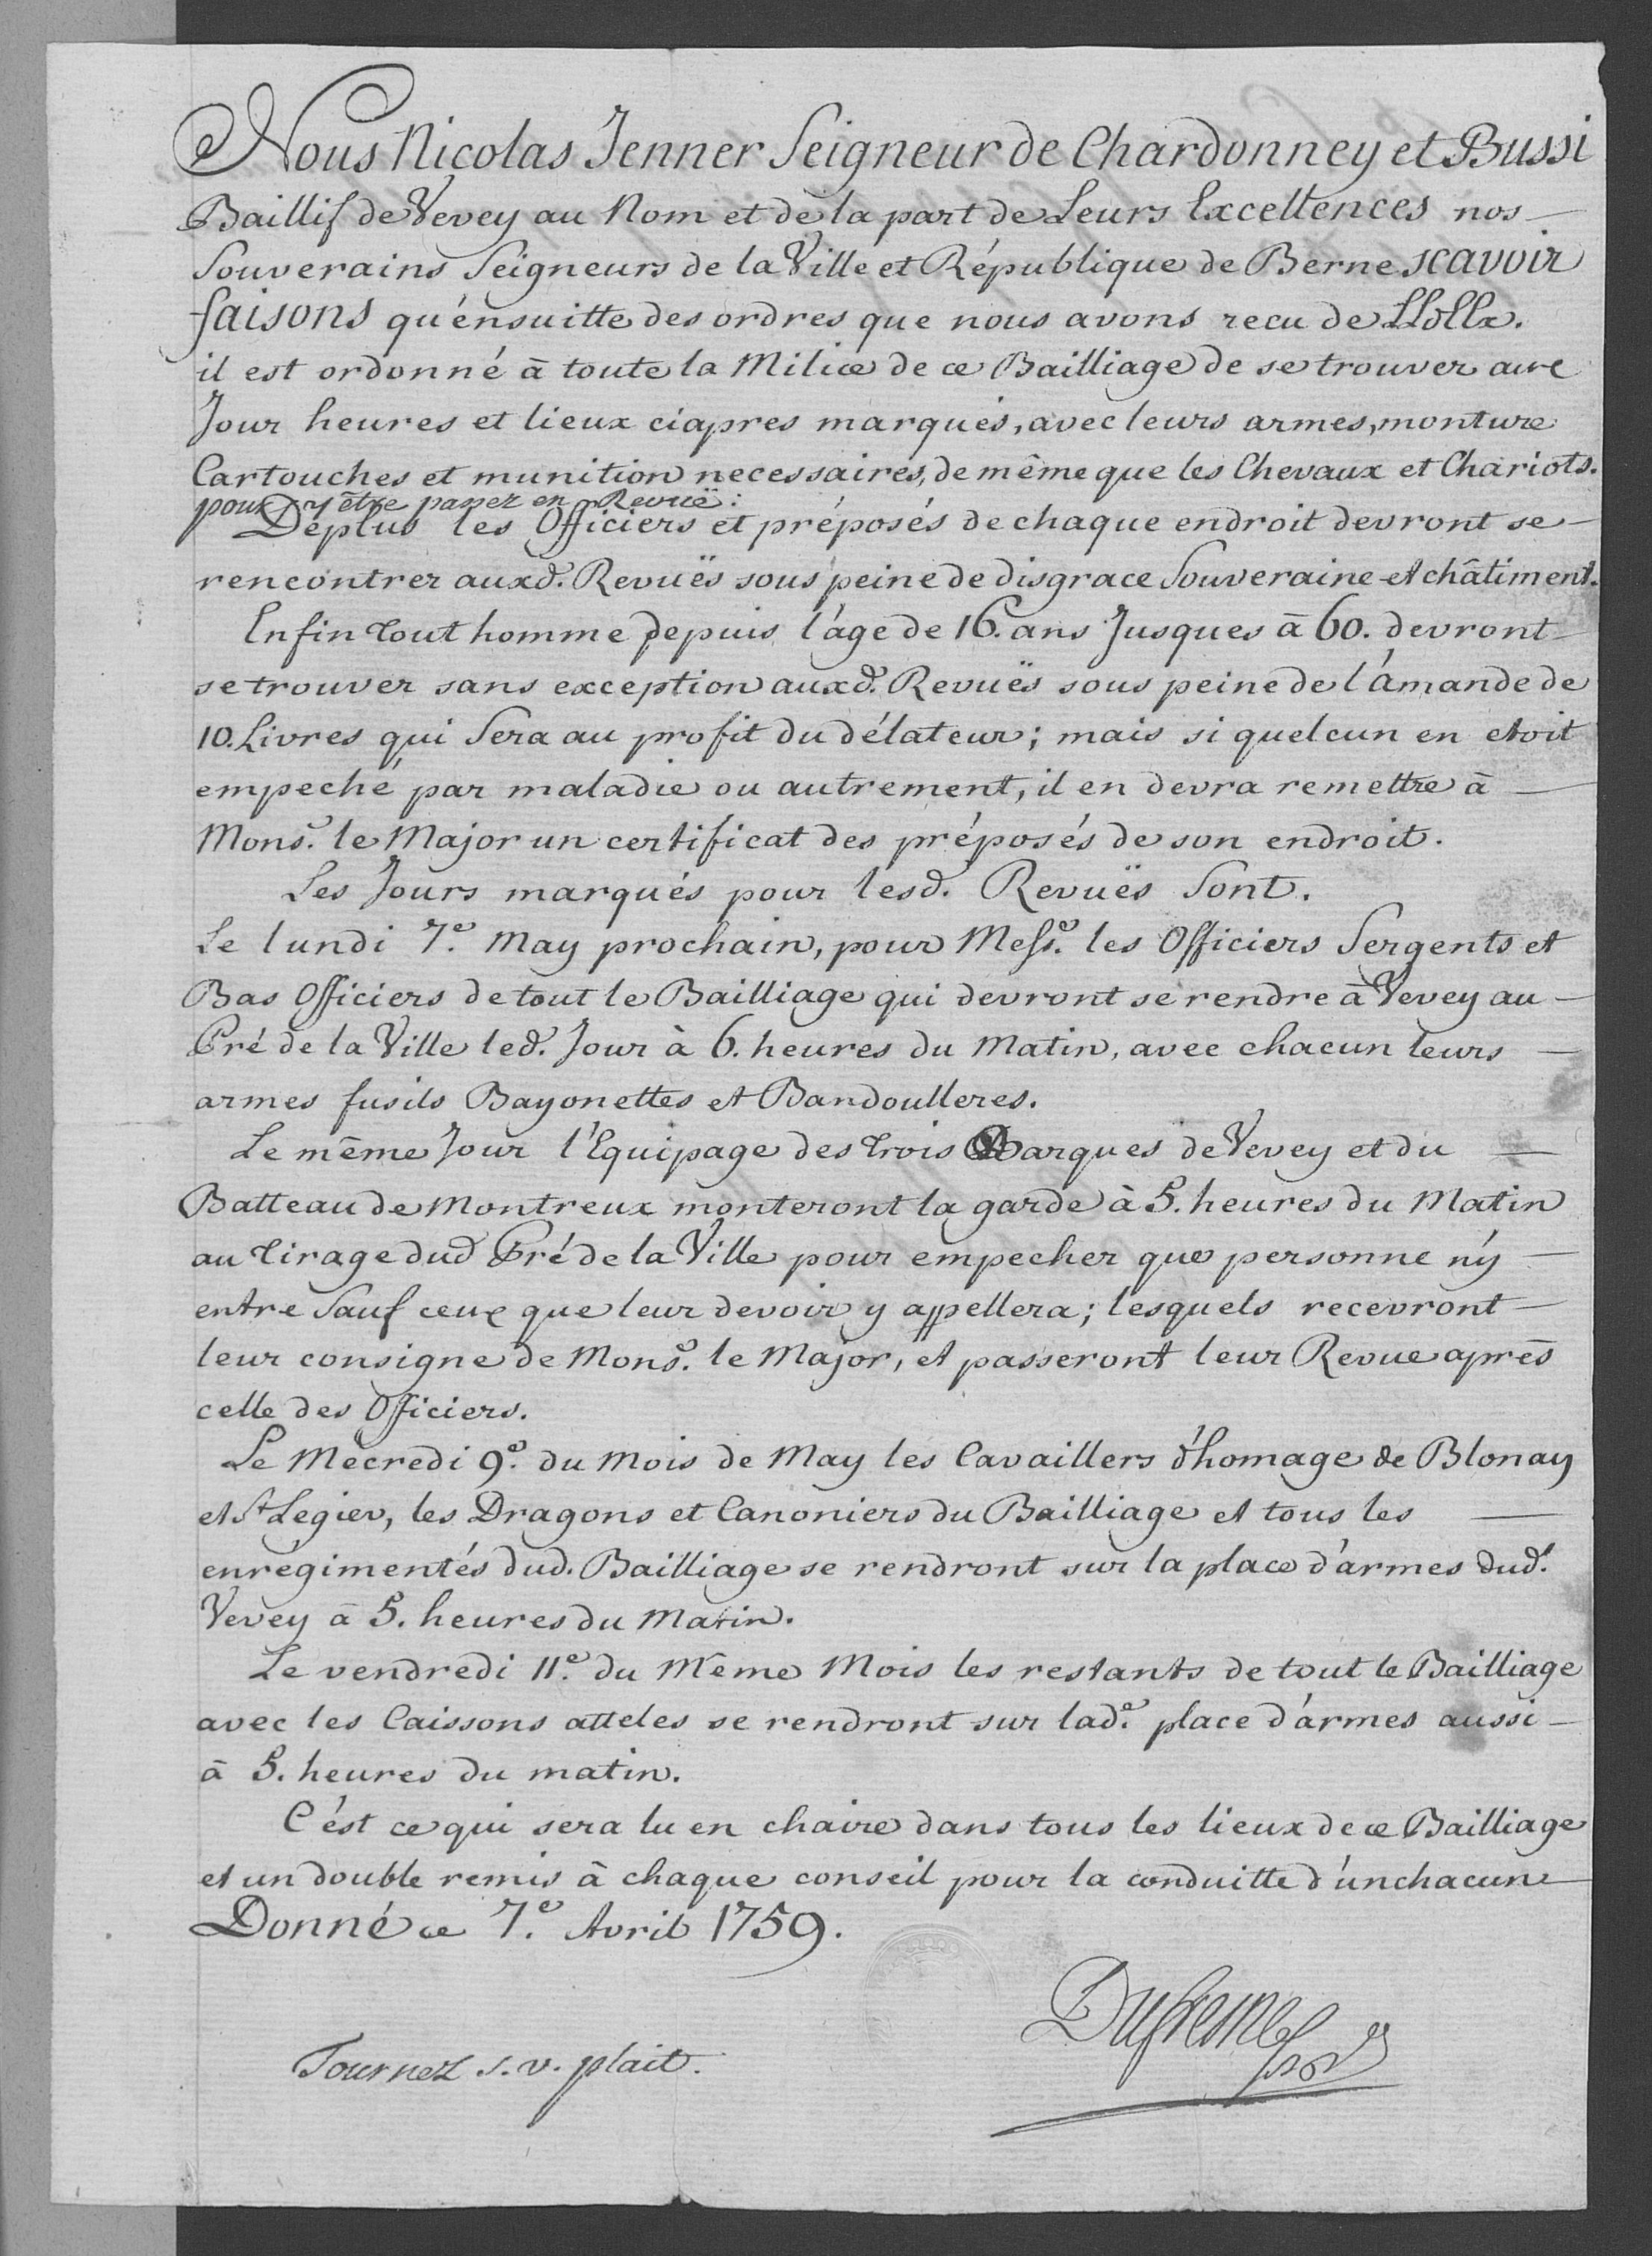 Nous Nicolas Jenner Seigneur de Chardonney et Bussi
Baillif de Vevey au Nom et de la part de Leurs Excellences nos
Souverains Seigneurs de la Ville et République de Berne scavoir
faisons qu'énsuitte des ordres que nous avons recu de LLEEx.
il est ordonné à toute la Milice de ce Bailliage de se trouver aux
Jour heures et lieux ciapres marqués, avec leurs armes, monture
Cartouches et munition necessaires, de même que les Chevaux et Chariots.
pour y être passez en Revuë:
Déplus les Officiers et préposés de chaque endroit devront se
rencontrer auxd. Revuës sous peine de disgrace Souveraine et châtiment.
Enfin tout homme depuis l'áge de 16. ans Jusques à 60. devront
se trouver sans exception auxd. Revuës sous peine de l'ámande de
10. Livres qui Sera au profit du délateur; mais si quelcun en etoit
empeché par maladie ou autrement, il en devra remettre à
Mons.r le Major un certificat des préposés de son endroit.
Les Jours marqués pour lesd. Revuës Sont.
Le lundi 7.e May prochain, pour Mess.rs les Officiers Sergents et
Bas Officiers de tout le Bailliage qui devront se rendre à Vevey au
Pré de la Ville led. Jour à 6. heures du Matin, avec chacun leurs
armes fusils Bayonettes et Bandoulleres.
Le même Jour l'Equipage des trois Barques de Vevey et du
Batteau de Montreux monteront la garde à 5. heures du Matin
au tirage dud Pré de la Ville pour empecher que personne n'y
entre Sauf ceux que leur devoir y appellera; lesquels recevront
leur consigne de Mons.r le Major, et passeront leur Revue après
celle des Officiers.
Le Mécredi 9.e du Mois de May les Cavaillers d'homage de Blonay
et St Legier, les Dragons et Canoniers du Bailliage et tous les
enrégimentés dud. Bailliage se rendront sur la place d'armes dud.t
Vevey à 5. heures du Matin.
Le vendredi 11.e du Même Mois les restants de tout le Bailliage
avec les Caissons atteles se rendront sur lad.e place d'armes aussi
à 5. heures du matin.
C'ést ce qui sera lu en chaire dans tous les lieux de ce Bailliage
et un double remis à chaque conseil pour la conduitte d'unchacun
Donné ce 7.e Avril 1759.
Dufresne
Tournez s. v. plait.